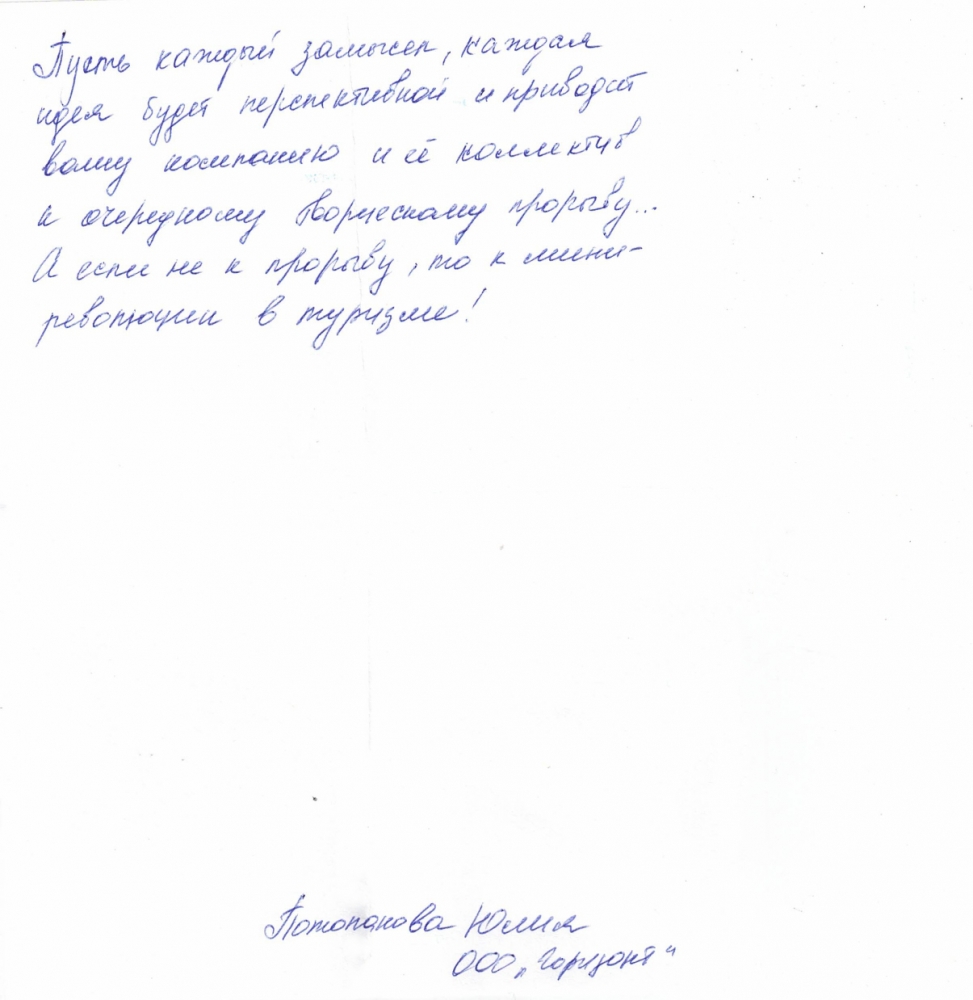 Пусть каждый замысел, каждая
идея будет перспективной и приводит
вашу компанию и её коллектив
к очередному творческому прорыву...
А если не к прорыву, то к мини-
революции в туризме!
Потопахова Юлия
ООО „Горизонт"